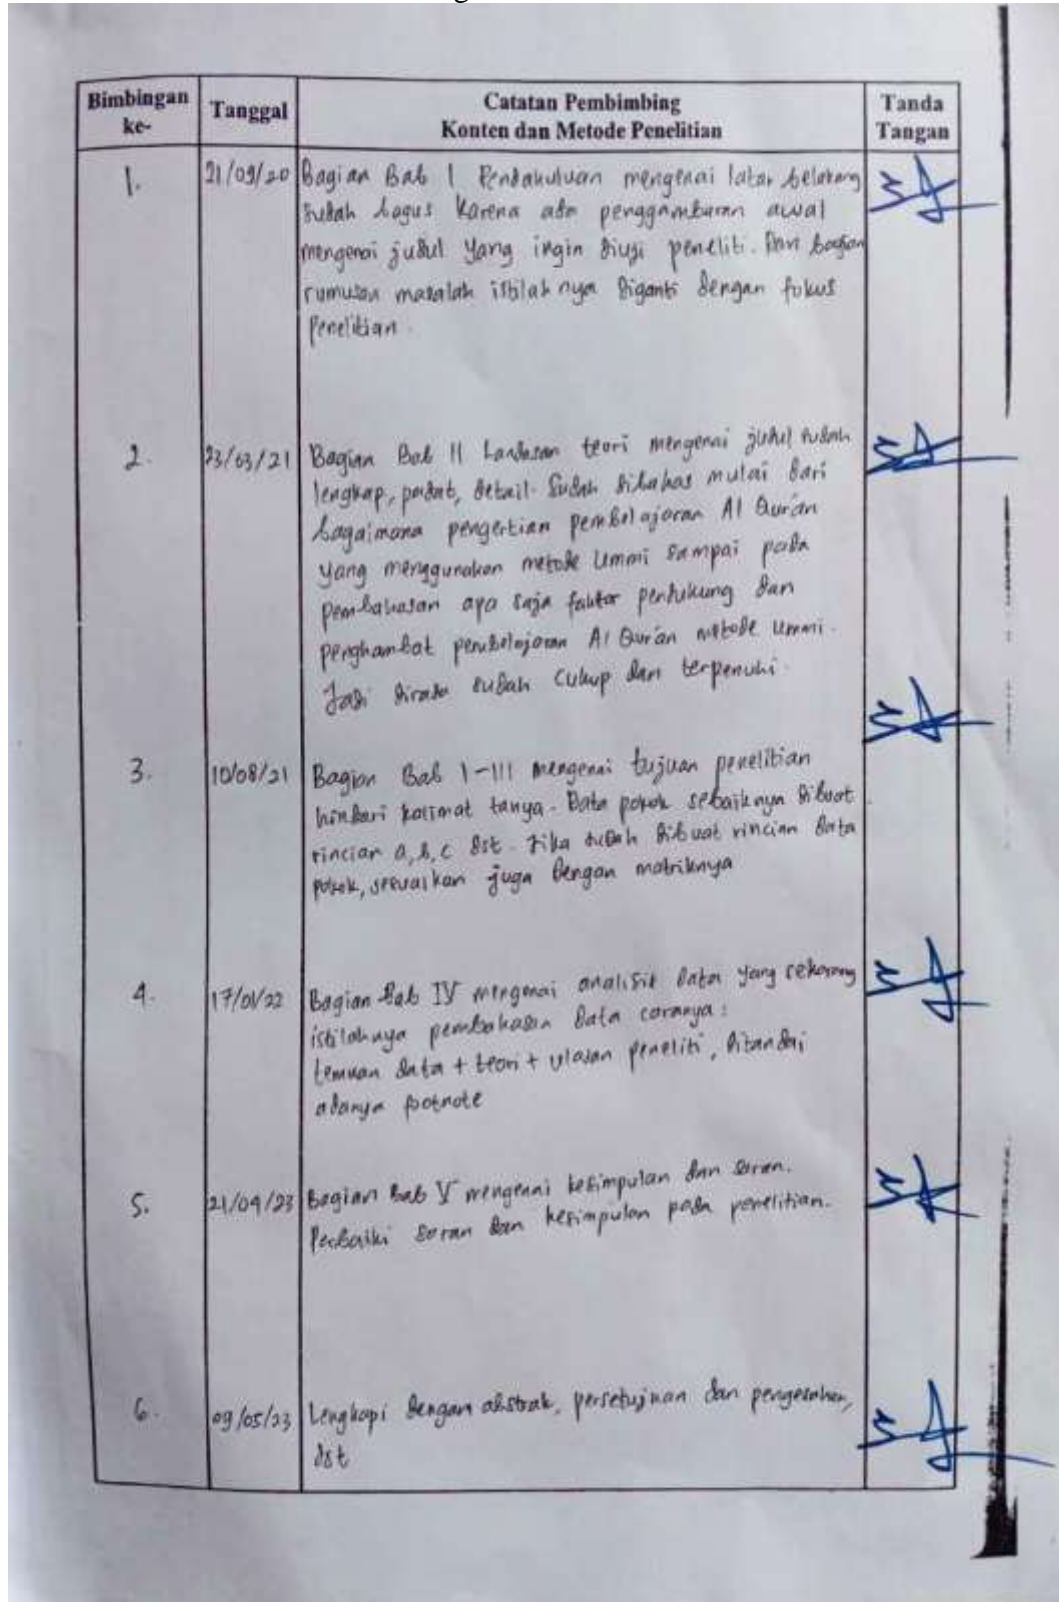 Bimbingan ke-
Tanggal
Catatan Pembimbing
Konten dan Metode Penelitian
Tanda Tangan
1.
21/09/20
Bagian Bab I Pendahuluan mengenai latar belakang
sudah bagus karena ada penggambaran awal
mengenai judul yang ingin diuji peneliti. Dari bagian
rumusan masalah istilahnya diganti dengan fokus
Penelitian.
2.
23/03/21
Bagian Bab II Landasan teori mengenai judul sudah
lengkap, padat, detail. Sudah dibahas mulai dari
bagaimana pengertian pembelajaran Al Qur'an
yang menggunakan metode Ummi sampai pada
pembahasan apa saja faktor pendukung dan
penghambat pembelajaran Al Qur'an metode Ummi.
Jadi dirasa sudah cukup dan terpenuhi.
3.
10/08/21
Bagian Bab I-III mengenai tujuan penelitian
hindari kalimat tanya. Data pokok sebaiknya dibuat
rincian a, b, c dst. Jika sudah dibuat rincian data
pokok, sesuaikan juga dengan matriknya
4.
17/01/22
Bagian Bab IV mengenai analisis data yang sekarang
istilahnya pembahasan data caranya:
temuan data + teori + ulasan peneliti, ditandai
adanya footnote
5.
21/04/23
Bagian Bab V mengenai kesimpulan dan saran.
Perbaiki saran dan kesimpulan pada penelitian.
6.
09/05/23
Lengkapi dengan abstrak, persetujuan dan pengesahan,
dst